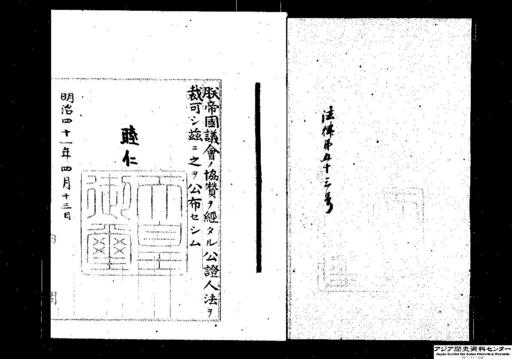 法律第五十三号
朕帝國議會ノ協贊ヲ經タル公證人法ヲ
裁可シ玆ニ之ヲ公布セシム
睦仁
天皇
御璽
明治四十一年四月十三日
アジア歴史資料センター
Japan Center for Asian Historical Records